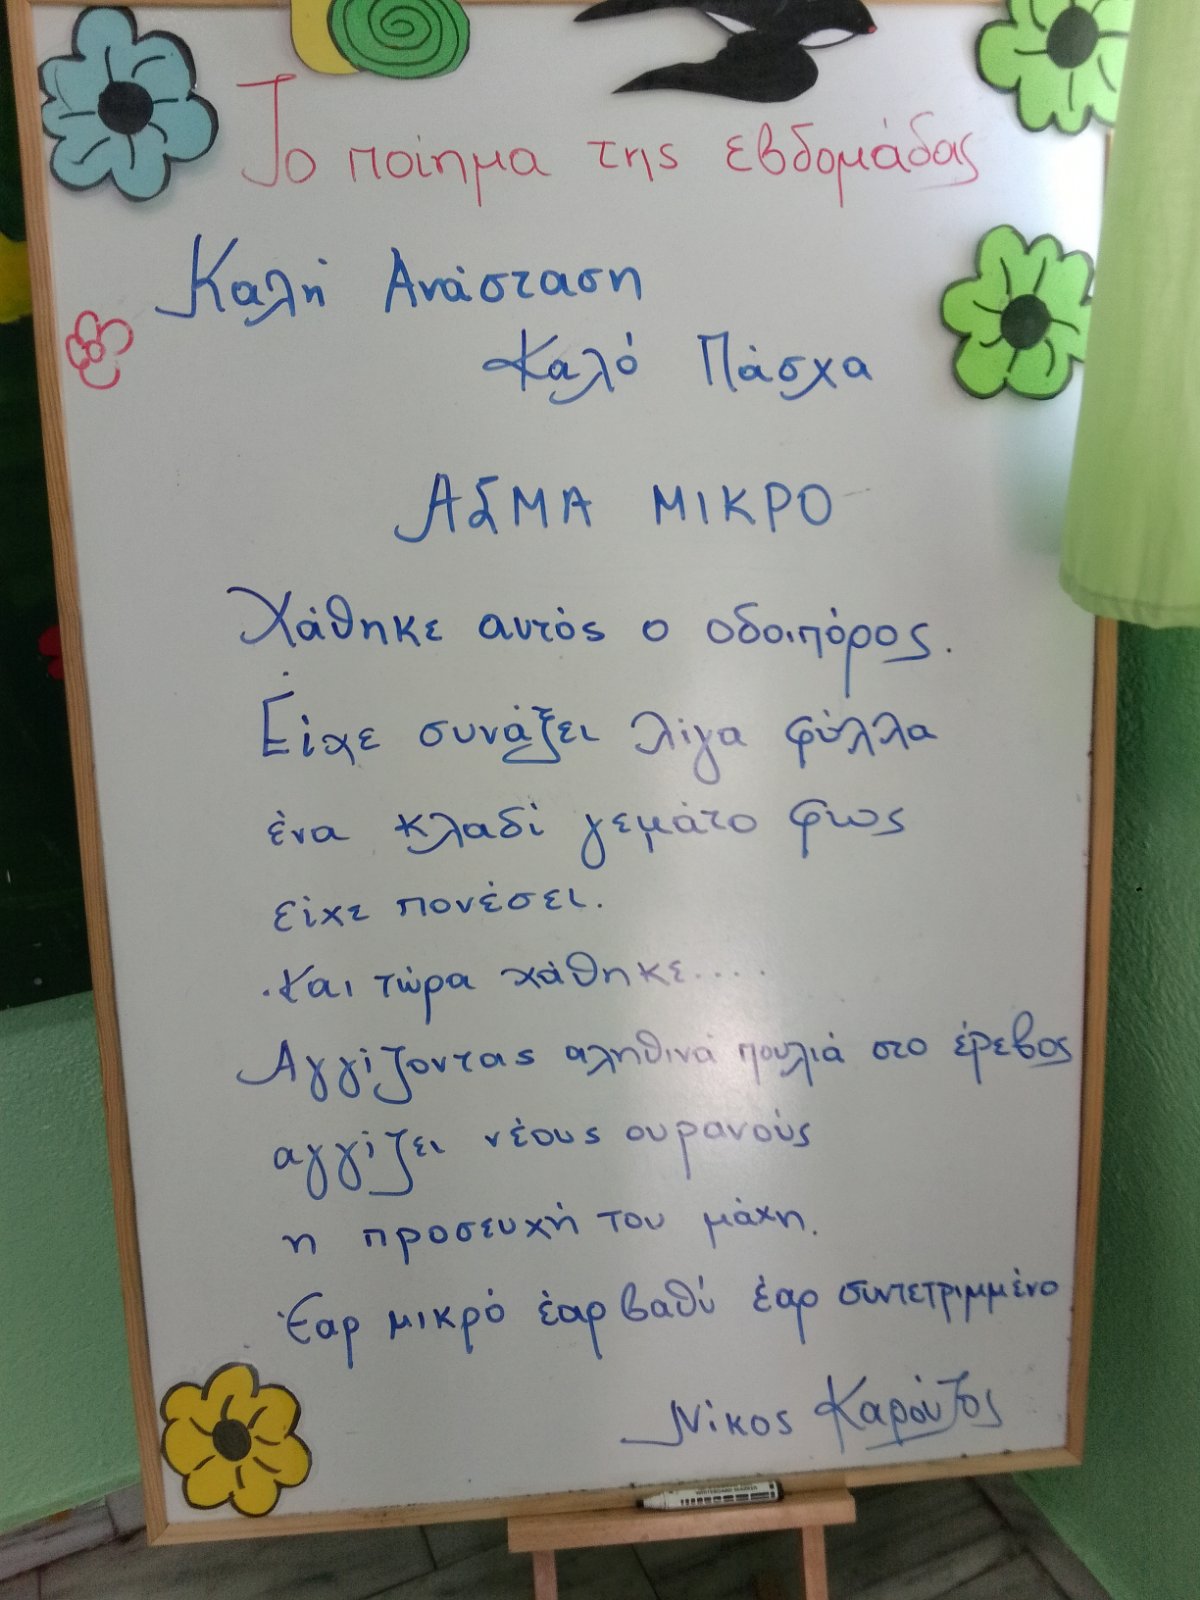 Το ποίημα της εβδομάδας
Καλή Ανάσταση
Καλό Πάσχα
ΑΣΜΑ ΜΙΚΡΟ
Χάθηκε αυτός ο οδοιπόρος.
Είχε συνάξει λίγα φύλλα
ένα κλαδί γεμάτο φως
είχε πονέσει.
Και τώρα χάθηκε....
Αγγίζοντας αληθινά πουλιά στο έρεβος
αγγίζει νέους ουρανούς
η προσευχή του μάχη.
Έαρ μικρό έαρ βαθύ έαρ συντετριμμένο
Νίκος Καρούζος
WHITEBOARD MARKER